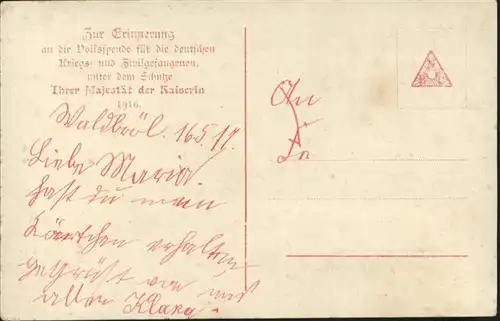 Zur Erinnerung
an die Volksspende für die deutschen
Kriegs- und Zivilgefangenen,
unter dem Schutze
Ihrer Majestät der Kaiserin
1916.
Waldbröl. 16 5. 17.
Liebe Maria.
hast du mein
Kärtchen erhalten
gegrüßt von uns
allen Klara.
An
In